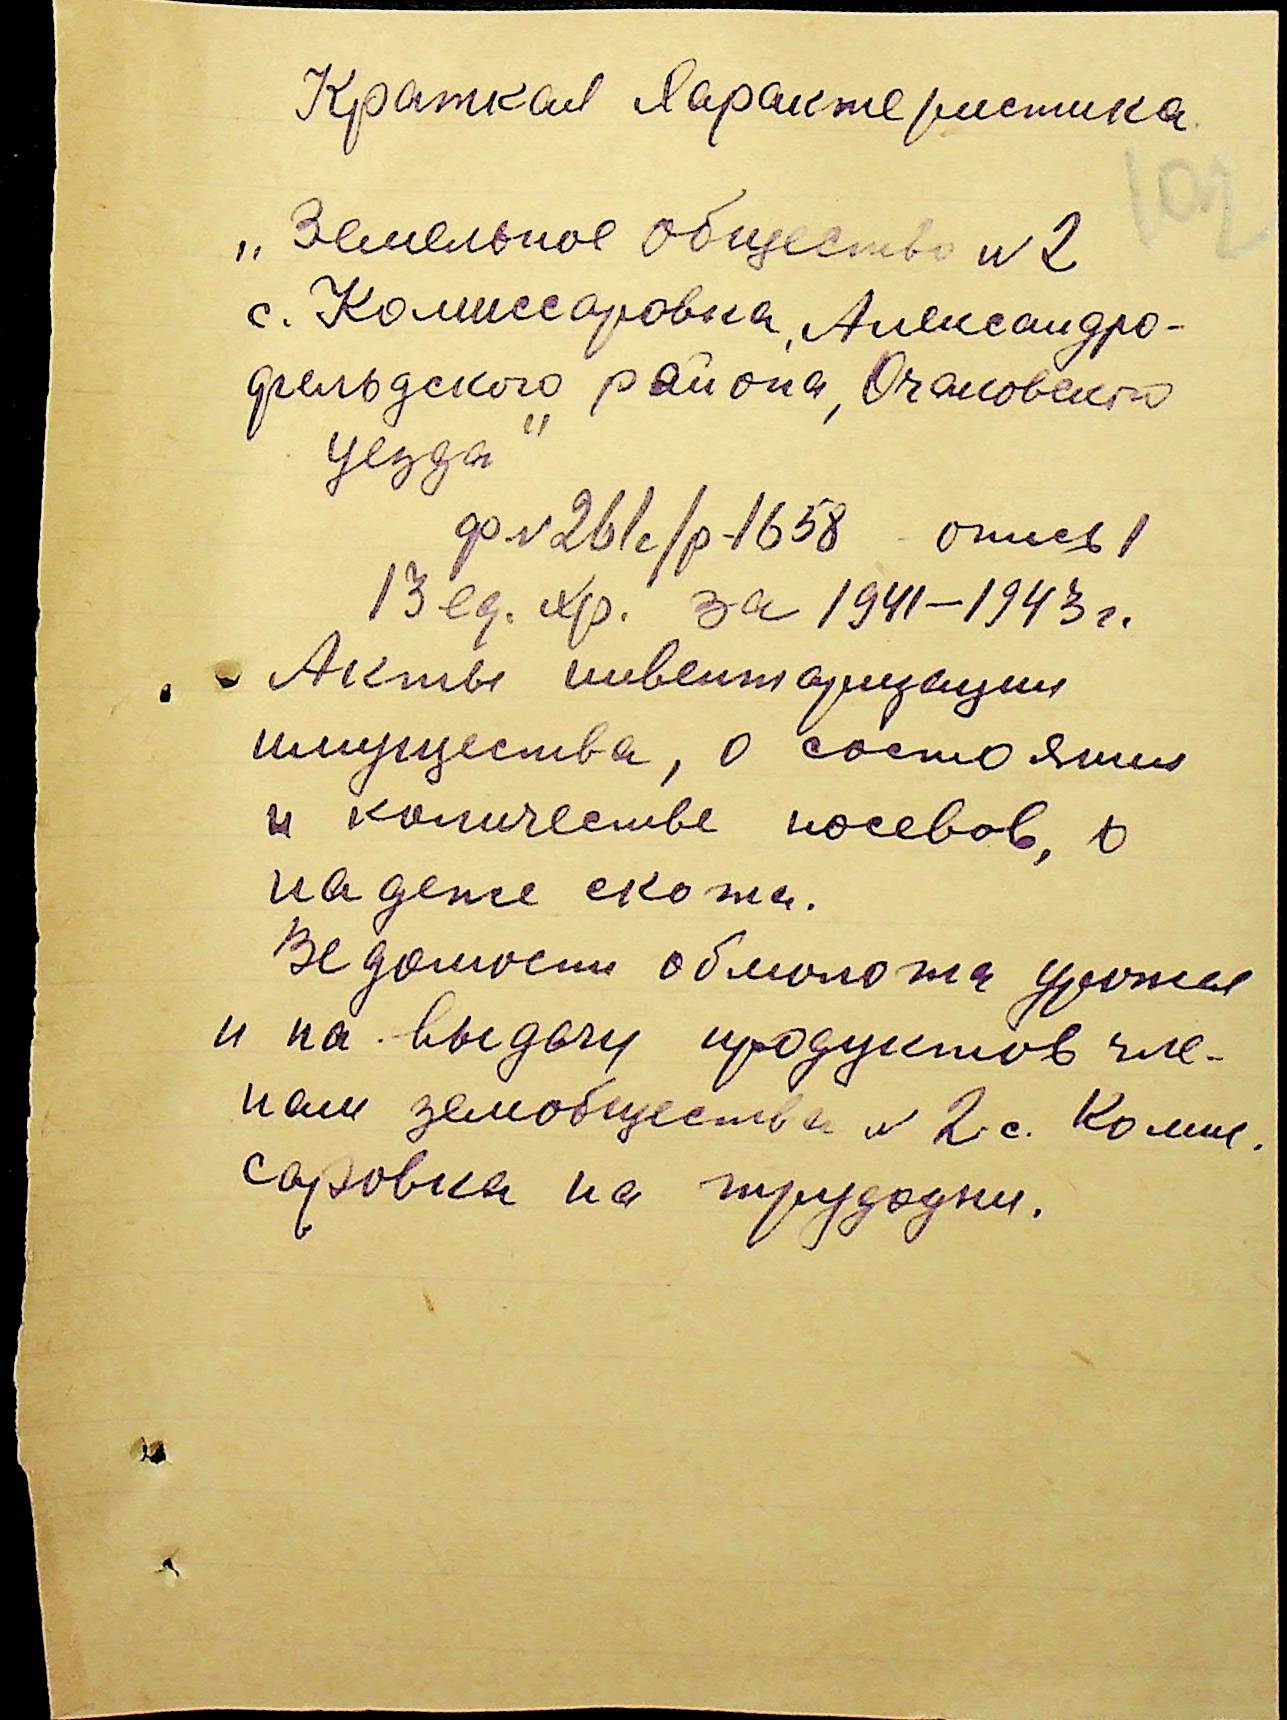 Краткая Характеристика
102
„Земельное общество № 2
с. Комиссаровка, Александро-
фельдского района, Очаковского
уезда"
ф. № 261с/р-1658 опись 1
13 ед. хр. за 1941–1943 г.
Акты инвентаризации
имущества, о состоянии
и количестве посевов, о
падеже скота.
Ведомости обмолота урожая
и на выдачу продуктов чле-
нам земобщества № 2 с. Комис-
саровка на трудодни.